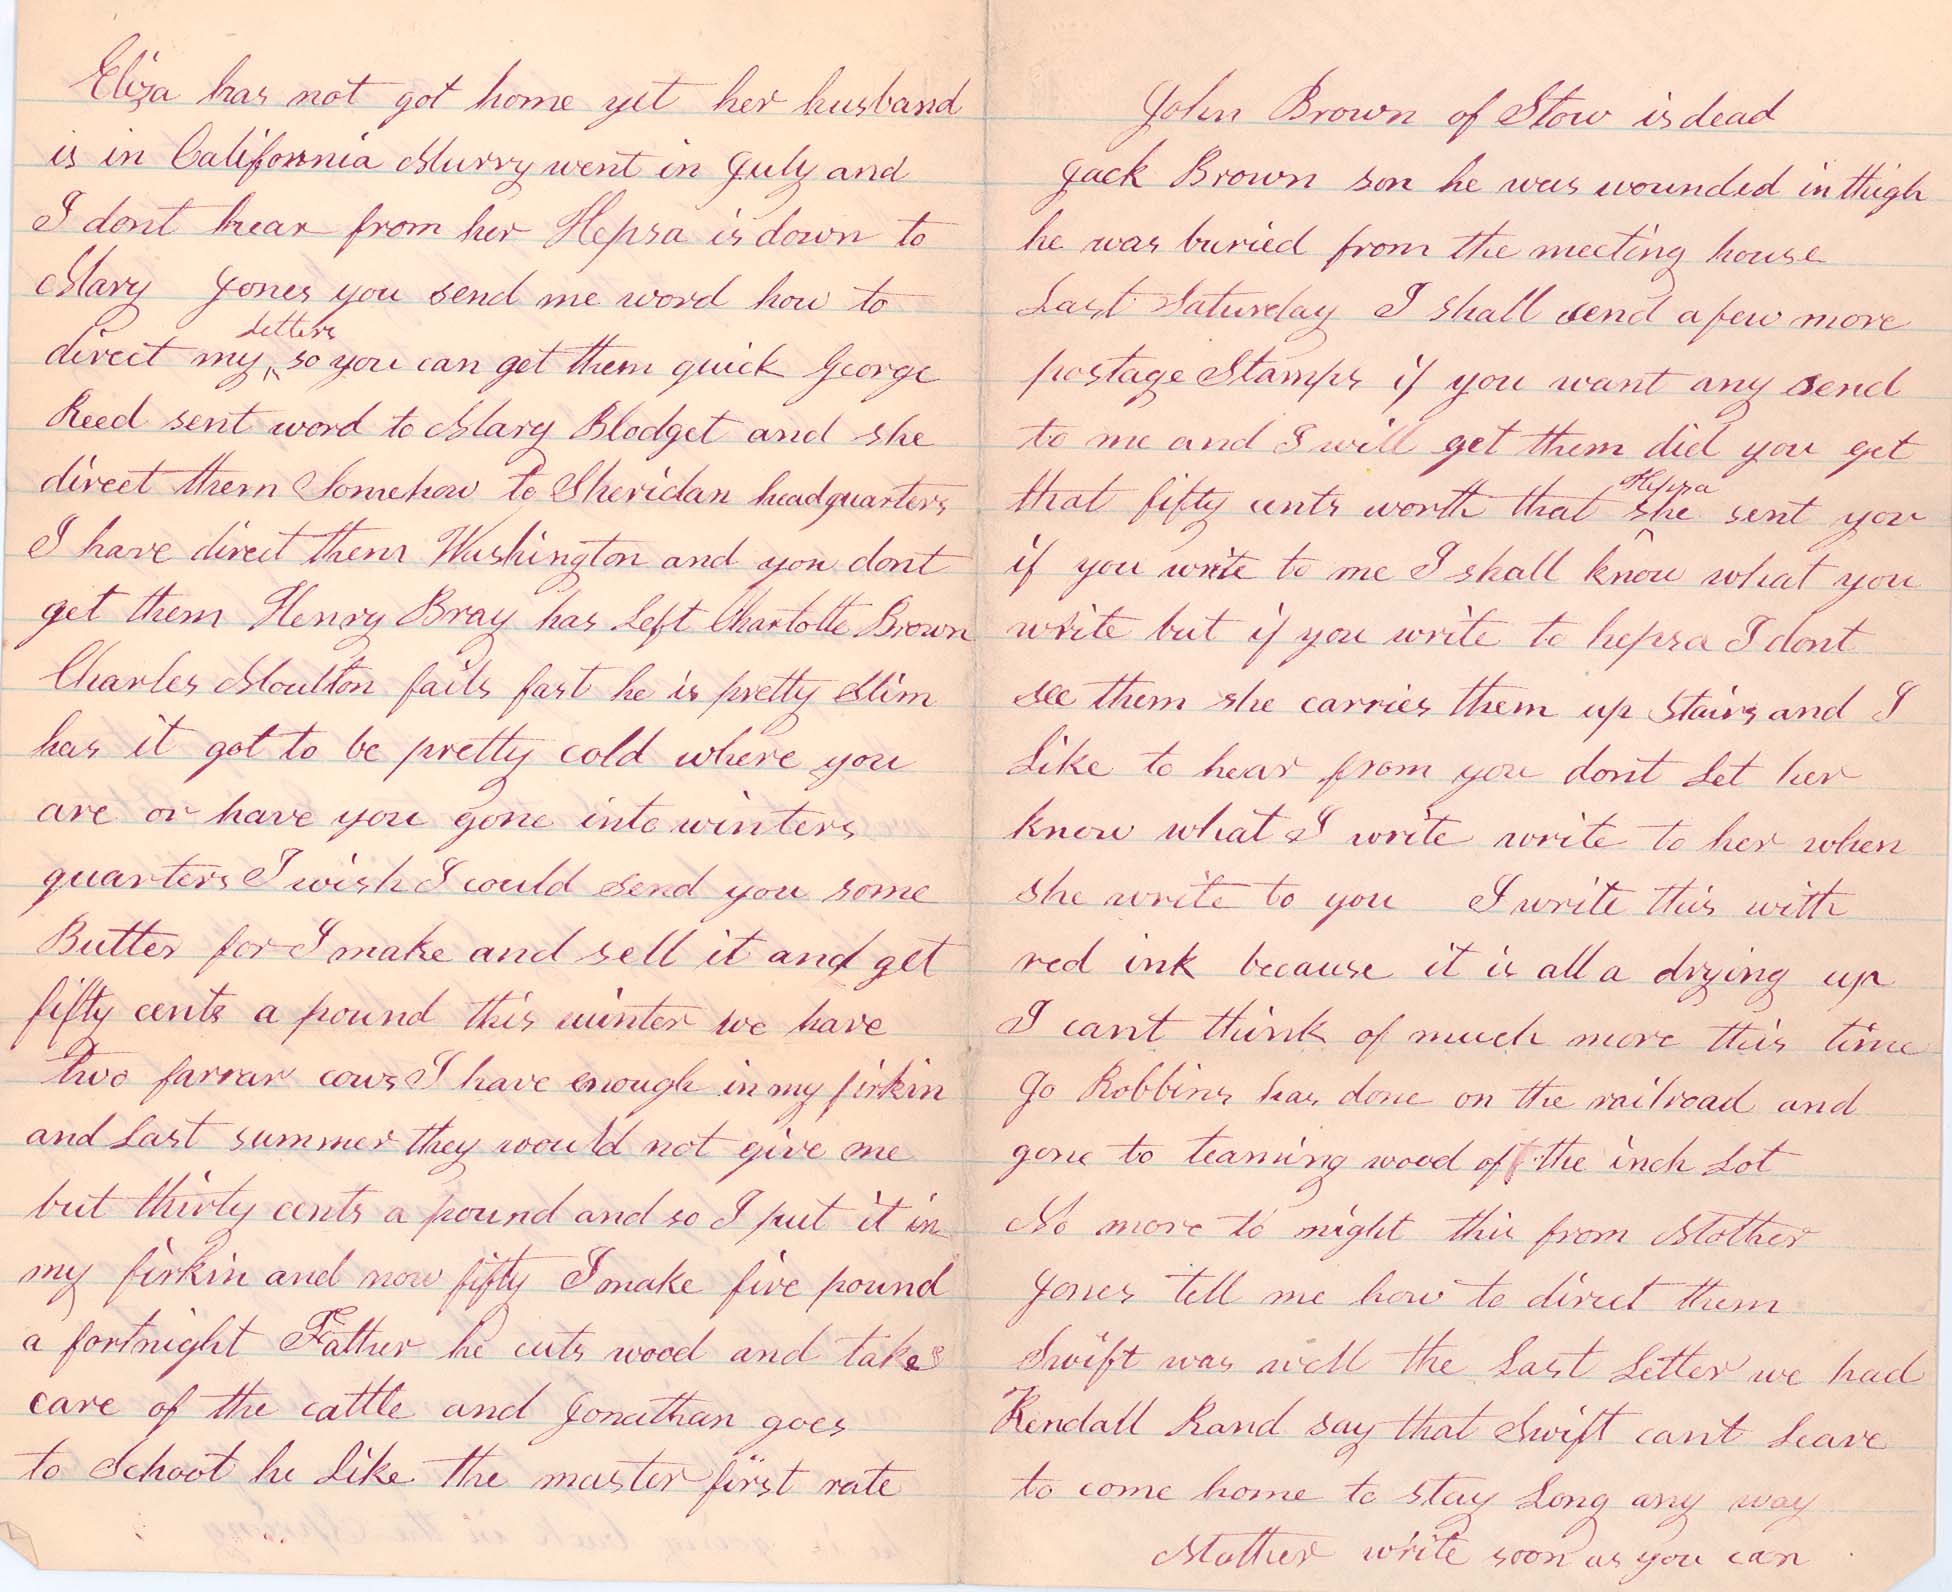 Eliza has not got home yet her husband
is in California Murry went in July and
I dont hear from her Hepsa is down to
Mary Jones you send me word how to
direct my letters so you can get them quick George
Reed sent word to Mary Blodget and she
direct them Somehow to Sheridan headquarters
I have direct them Washington and you dont
get them Henry Bray has Left Charlotte Brown
Charles Moulton fails fast he is pretty Slim
has it got to be pretty cold where you
are or have you gone into winters
quarters I wish I could send you some
Butter for I make and sell it and get
fifty cents a pound this winter we have
two farrar cows I have enough in my firkin
and Last summer they would not give me
but thirty cents a pound and so I put it in
my firkin and now fifty I make five pound
a fortnight Father he cuts wood and takes
care of the cattle and Jonathan goes
to School he Like the master first rate
John Brown of Stow is dead
Jack Brown son he was wounded in thigh
he was buried from the meeting house
Last Saturday I shall send a few more
postage Stamps if you want any send
to me and I will get them did you get
that fifty cents worth that Hepsa she sent you
if you write to me I shall know what you
write but if you write to hepsa I dont
see them she carries them up Stairs and I
Like to hear from you dont Let her
know what I write write to her when
she write to you I write this with
red ink because it is all a drying up
I cant think of much more this time
Jo Robbins has done on the railroad and
gone to teaming wood of the inch Lot
No more to night this from Mother
Jones tell me how to direct them
Swift was well the Last Letter we had
Kendall Rand say that Swift cant Leave
to come home to stay Long any way
Mother write soon as you can